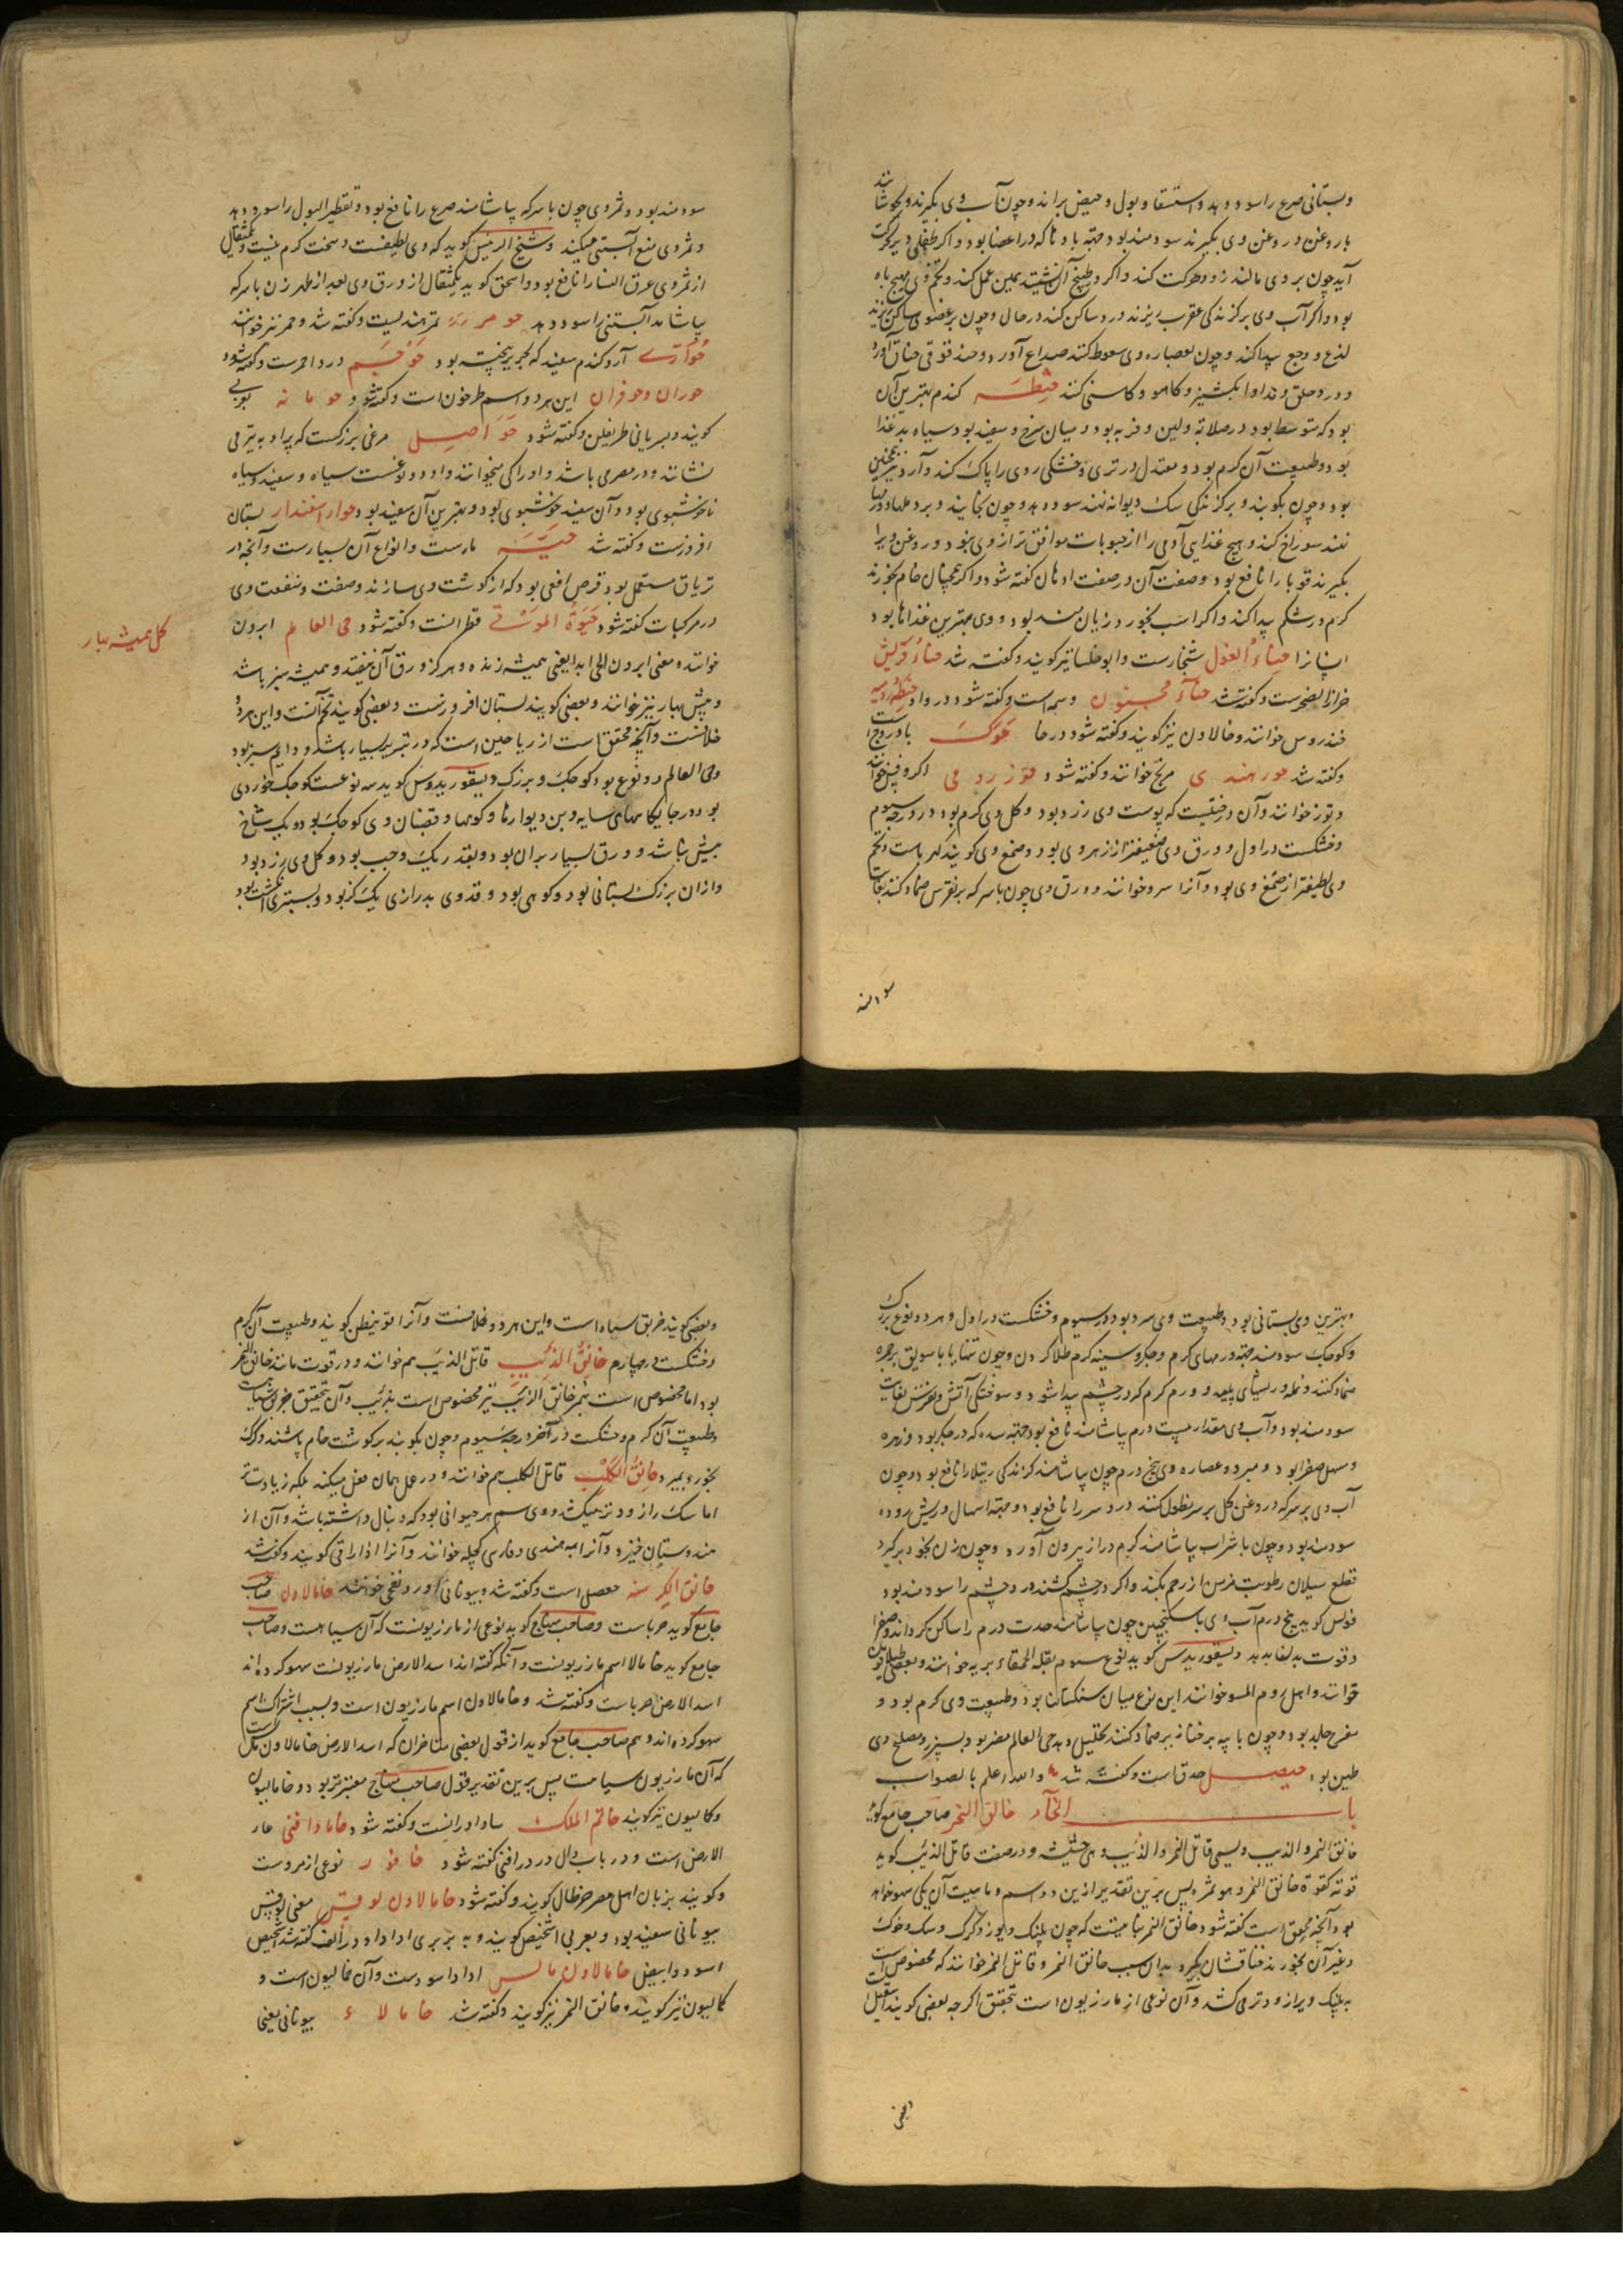 وبستانی صرع را سود دهد و استسقا و بول و حیض براند و چون آب وی بگیرند و بجوشانند
با روغن و روغن وی بگیرند سودمند بود جهة بادها که در اعضا بود و اگر طفلی دیر حرکت
آید چون بر وی مالند زود حرکت کند و اگر در طبیخ آن نشیند همین عمل کند و تخم وی مهیج باه
بود و اگر آب وی بر گزندگی عقرب ریزند درد ساکن کند در حال و چون بر عضوی ساکن ریزند
لذع و وجع پیدا کند و چون بعصاره وی سعوط کنند صداع آورد و حندقوقی خناق آورد
و درد حلق و مداوا بکشنیز و کاهو و کاسنی کنند حنطه گندم بهترین آن
بود که متوسط بود در صلابة ولین و فربه بود و میان سرخ و سفید بود و سیاه بد غذا
بود و طبیعت آن گرم بود و معتدل در تری و خشکی روی را پاک کند و آرد نیز همچنین
بود و چون بکوبند و بر گزندگی سگ دیوانه نهند سود دهد و چون بخایند و بر دملها و ورمها
نهند سوراخ کند و هیچ غذایی آدمی را از حبوبات موافق تر از وی نبود و روغن ویرا
بگیرند قوبا را نافع بود و صفت آن در صفت ادهان گفته شود و اگر همچنان خام بخورند
کرم در شکم پیدا کند و اگر اسب بخورد زیان مند بود و وی بهترین غذاها بود
انسانرا حناء الغول شنجارست و ابوخلسا نیز گویند و گفته شد حناء قریش
حزاز الصخرست و گفته شد حناء مجنون وسمه است و گفته شود در واو حنطه رومیه
خندروس خوانند و خالاون نیز گویند و گفته شود در خا حوک بادروج است
و گفته شد حور هندی مریخ خوانند و گفته شود حور رومی اکروفیس خوانند
و توز خوانند و آن درختیست که پوست وی زرد بود و گل وی گرم بود در درجه سیوم
و خشکست در اول و ورق وی ضعیفتر از زهر وی بود و صمغ وی گویند کهرباست و تخم
وی لطیفتر از صمغ وی بود و آنرا سرو خوانند و ورق وی چون با سرکه بر نقرس ضماد کنند بغایت
سودمند
سودمند بود و ثمر وی چون با سرکه بیاشامند صرع را نافع بود و تقطیر البول را سود دهد
و ثمر وی منع آبستنی میکند و شیخ الرئیس گوید که وی لطیفست و سخت گرم نیست و یکمثقال
از ثمر وی عرق النسا را نافع بود و اسحق گوید یکمثقال از ورق وی بعد از طهر زن با سرکه
بیاشامد آبستنی را سود دهد حومر تمر هندیست و گفته شد و حمر نیز خوانند
حواری آرد گندم سفید که بحریر بیخته بود حوجم ورد احمرست و گفته شود
حوران و حوفران این هر دو اسم طرخون است و گفته شود حومانه بعربی
گویند و بسریانی طریفلن و گفته شود حواصل مرغی بزرگست که پر او به تیر می
نشانند و در مصر می باشد و او را کی میخوانند و او دو نوعست سیاه و سفید و سیاه
ناخوشبوی بود و آن سفید خوشبوی بود و بهترین آن سفید بود حوار اسفندار بستان
افروزست و گفته شد حیه مارست و انواع آن بسیارست و آنچه در
تریاق مستعمل بود قرص افعی بود که از گوشت وی سازند و صفت و منفعت وی
در مرکبات گفته شود حیوة الموتی قطرانست و گفته شود حی العالم ابرون
گل همیشه بهار
خوانند و معنی ابرون الحی ابدا یعنی همیشه زنده و هرگز ورق آن نیفتد و همیشه سبز باشد
و همیشه بهار نیز خوانند و بعضی گویند بستان افروزست و بعضی گویند تخم آنست و این هر دو
خلافست و آنچه محقق است از ریاحین است که در تبریز بسیار باشد و دایم سبز بود
و حی العالم دو نوع بود کوچک و بزرگ و دیسقوریدوس گوید سه نوعست کوچک خوردی
بود در جایگاههای سایه و بن دیوارها و کوهها و قضبان وی کوچک بود و یک شاخ
بیش باشد و ورق بسیار بر آن بود و بقدر یک وجب بود و گل وی زرد بود
و از آن بزرگ بستانی بود و کوهی بود و قد وی بدرازی یک گز بود و بستبری انگشت بود
و بهترین وی بستانی بود و طبیعت وی سرد بود در سیوم و خشکست در اول و هر دو نوع بزرگ
و کوچک سودمند جهة ورمهای گرم و جگر و سینه گرم طلا کردن و چون تنها یا با سویق بر جمره
ضماد کنند و نمله و ریشهای پلید و ورم گرم که در چشم پیدا شود و سوختگی آتش و نقرس بغایت
سودمند بود و آب وی مقدار بیست درم بیاشامند نافع بود جهة سده که در جگر بود و زهره
و مسهل صفرا بود و مبرد و عصاره وی پنج درم چون بیاشامند گزندگی رتیلا را نافع بود و چون
آب وی بر سرکه و روغن گل بر سر نطول کنند درد سر را نافع بود و جهة اسهال و ریش روده
سودمند بود و چون با شراب بیاشامند کرم دراز بیرون آورد و چون زن بخود برگیرد
قطع سیلان رطوبت مزمن از رحم بکند و اگر در چشم کشند درد چشم را سودمند بود
فولس گوید پنج درم آب وی با سکنجبین چون بیاشامند حدت دم را ساکن گرداند و صفرا
و قوت بدلها بدهد دیسقوریدس گوید نوع سیوم بقله الحمقاء بریه خوانند و بعضی طیلافیون
خوانند و اهل روم المسو خوانند این نوع میان سنگستان بود و طبیعت وی گرم بود و
مقرح جلد بود و چون با پیه بر خنازیر ضماد کنند تحلیل دهد حی العالم مضر بود بسپرز و مصلح وی
طین بود حیصل حدق است و گفته شد والله اعلم بالصواب
باب الخاء خانق النمر صاحب جامع گوید
خانق النمر و الذیب و لیسمی قاتل النمر و الذئب و هی حشیشه و در صفت قاتل الذئب گوید
قوته کقوة خانق النمر و هو ثمره پس برین تقدیر ازین دو اسم و ماهیت آن یکی سهو خواهد
بود آنچه محقق است گفته شود خانق النمر نباتیست که چون پلنگ و یوز و گرگ و سگ و خوک
و غیر آن بخورند خناقشان بگیرد بدان سبب خانق النمر و قاتل النمر خوانند که مخصوص است
به پلنگ و یرا زودتر می کشد و آن نوعی از مازریون است بتحقیق اگر چه بعضی گویند اسقیل است
وبعضی
و بعضی گویند خربق سیاه است و این هر دو خلافست و آنرا قونیطن گویند و طبیعت آن گرم
و خشکست در چهارم خانق الذئب قاتل الذیب هم خوانند و در قوت مانند خانق النمر
بود اما مخصوص است بنمر خانق الذئب نیز مخصوص است بذئب و آن بتحقیق خربق سیاهست
و طبیعت آن گرم و خشکست در آخر درجه سیوم و چون بکوبند بر گوشت خام پاشند و گرگ
بخورد بمیرد خانق الکلب قاتل الکلب هم خوانند و در عمل همان فعل میکند بلکه زیادت تر
اما سگ را زودتر میکشد و وی سم هر حیوانی بود که دنبال داشته باشد و آن از
هندوستان خیزد و آنرا به هندی و فارسی کچله خوانند و آنرا اذاراقی گویند و گفته شد
خانق الکرسنه جعفیل است و گفته شد و بیونانی اوروبنقی خوانند خامالاون صاحب
جامع گوید حرباست و صاحب منهاج گوید نوعی از مازریونست که آن سیاهست و صاحب
جامع گوید خامالا اسم مازریونست و آنکه گفته اند اسد الارض مازریونست سهو کرده اند
اسد الارض حرباست و گفته شد و خامالاون اسم مازریون است و بسبب اشتراک اسم
سهو کرده اند و هم صاحب جامع گوید از قول بعضی متاخران که اسد الارض خامالاون ملس است
که آن مازریون سیاهست پس برین تقدیر قول صاحب منهاج معتبرتر بود و خامالیون
و کمالیون نیز گویند خاتم الملک ساداورانست و گفته شود خامادافنی غار
الارض است و در باب دال در دافنی گفته شود خافور نوعی از مروست
و گویند بزبان اهل مصر خرطال گویند و گفته شود خامالاون لوقس معنی لوقس
بیونانی سفید بود و بعربی اشخیص گویند و به بربری اداداه در الف گفته شد اشخیص
اسود و ابیض خامالاون مالس ادادا سودست و آن خمالیون است و
کمالیون نیز گویند و خانق النمر نیز گویند و گفته شد خامالاء بیونانی یعنی